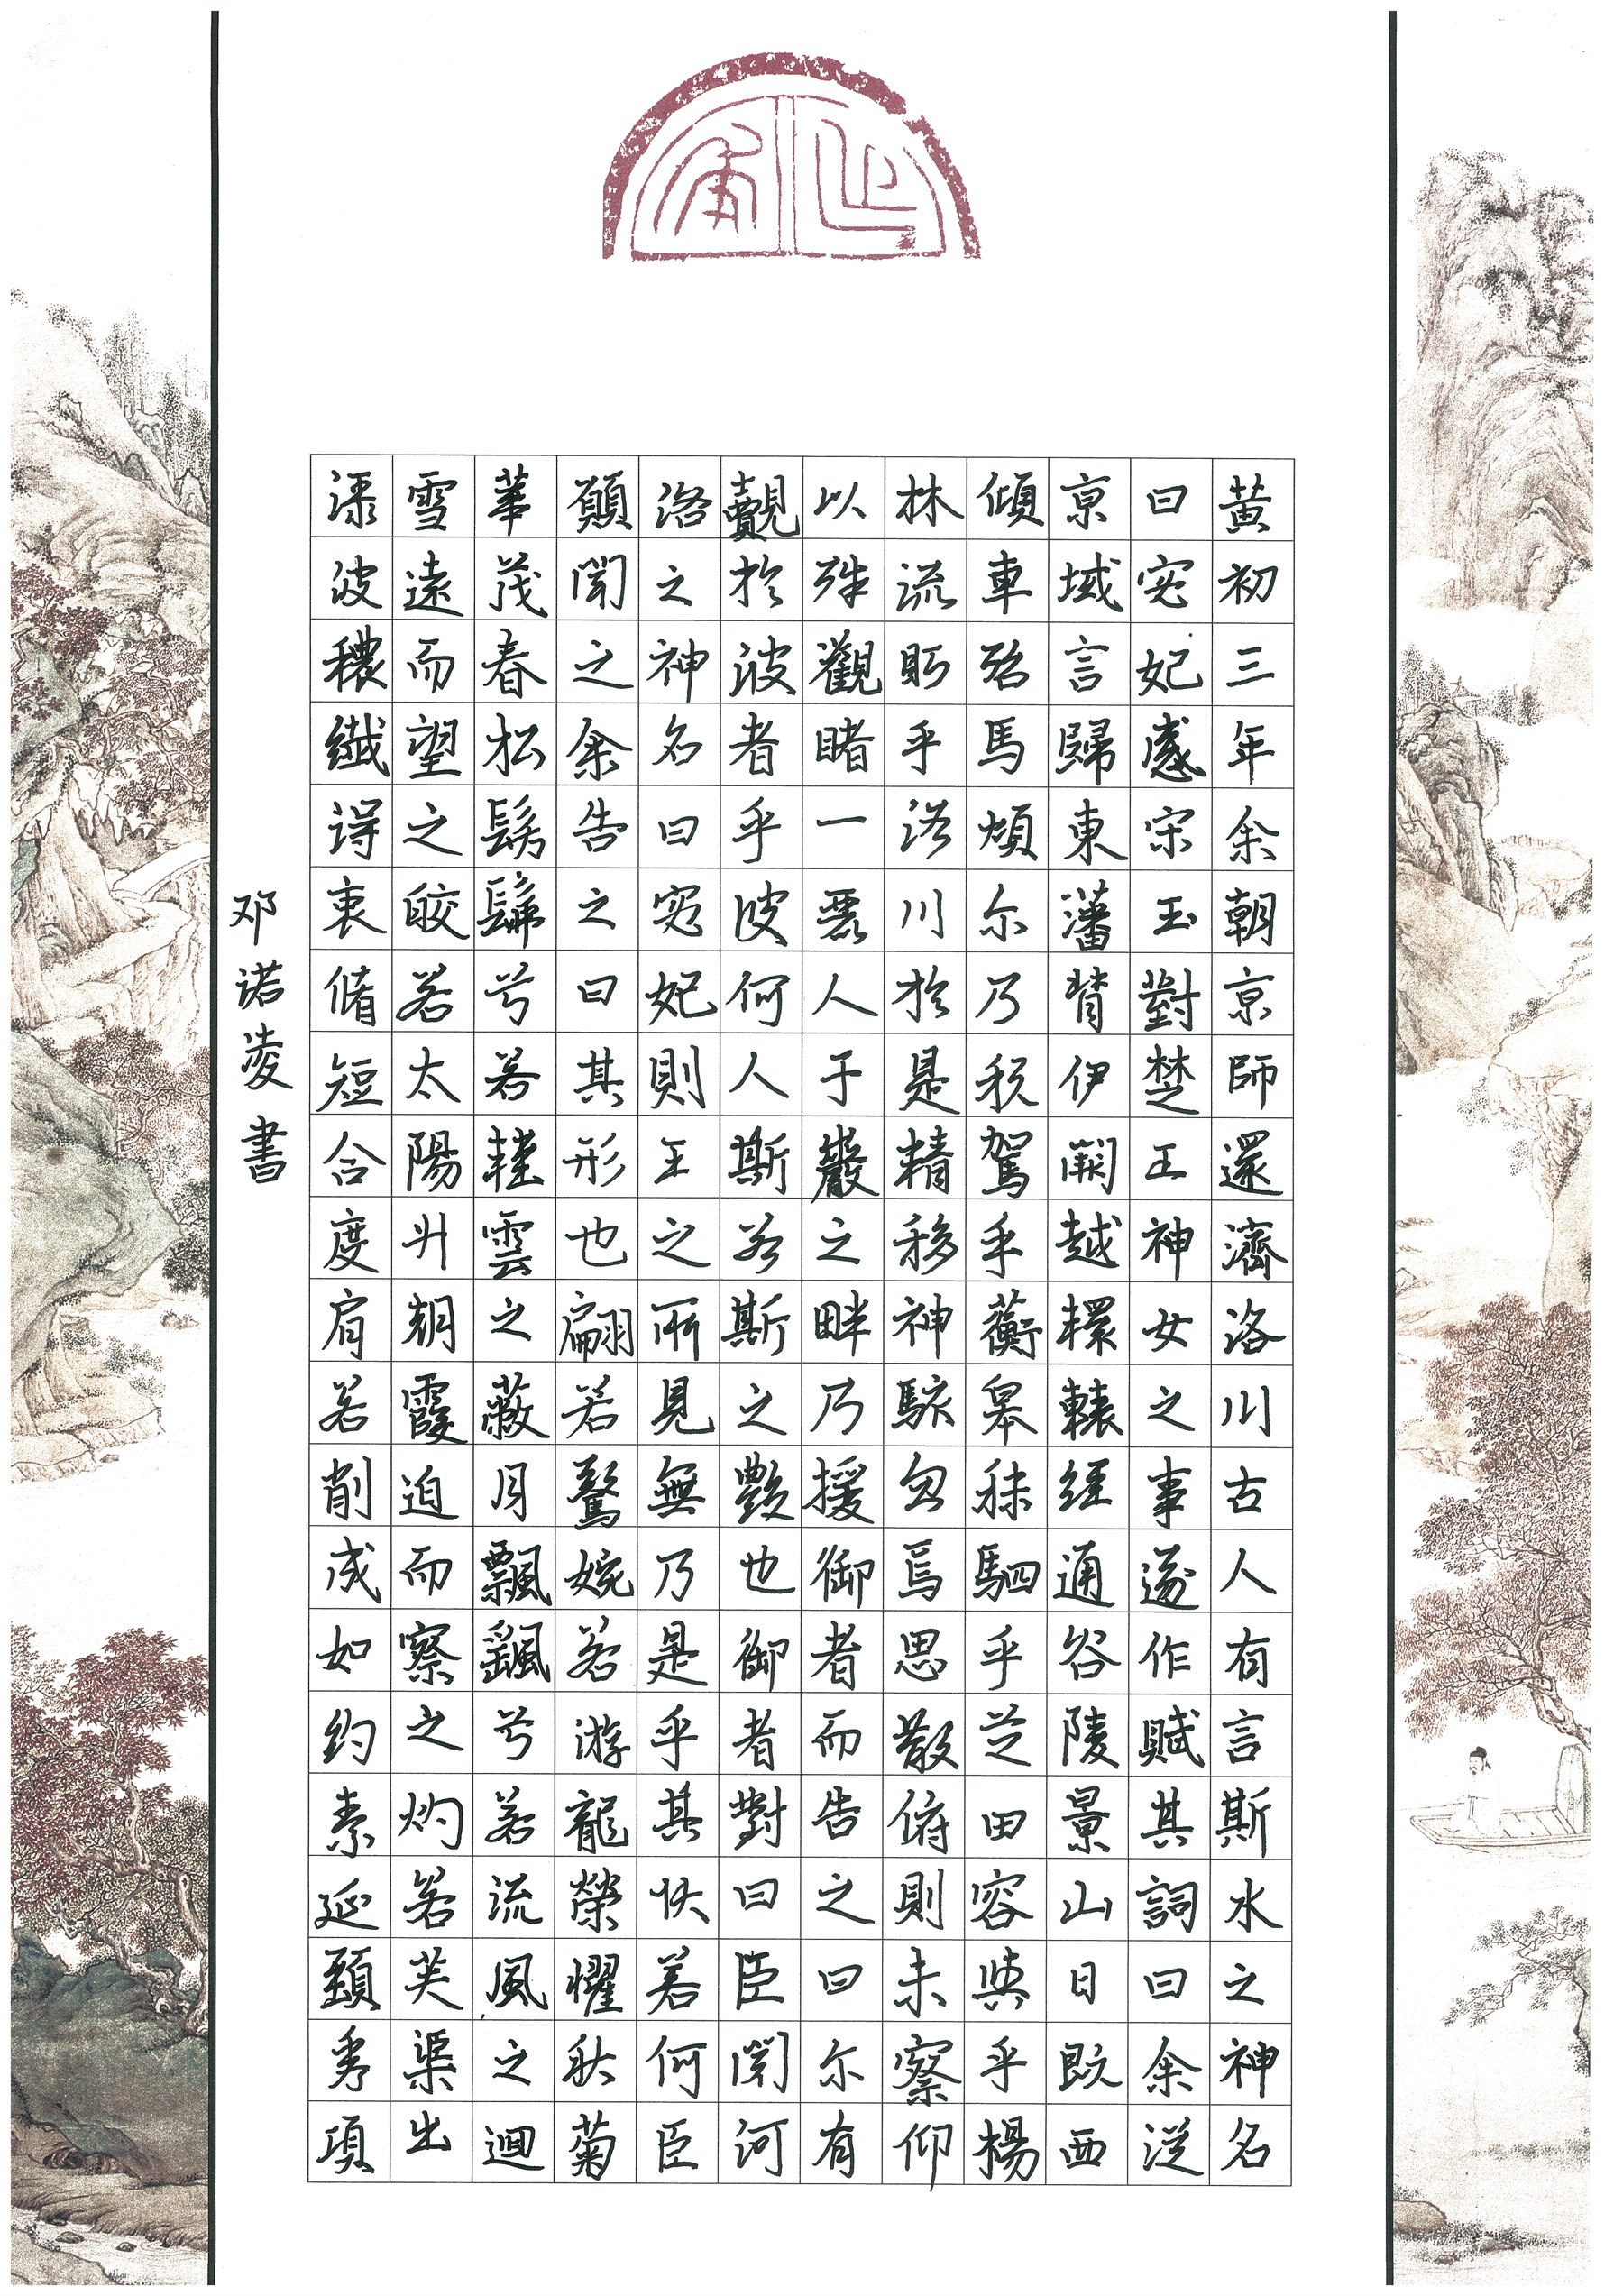 黃初三年余朝京師還濟洛川古人有言斯水之神名
曰宓妃感宋玉對楚王神女之事遂作賦其詞曰余從
京域言歸東藩背伊闕越轘轅經通谷陵景山日既西
傾車殆馬煩尔乃稅駕乎蘅皋秣駟乎芝田容與乎楊
林流眄乎洛川於是精移神駭忽焉思散俯則未察仰
以殊觀睹一麗人于巖之畔乃援御者而告之曰尔有
覿於彼者乎彼何人斯若斯之艷也御者對曰臣聞河
洛之神名曰宓妃則王之所見無乃是乎其狀若何臣
願聞之余告之曰其形也翩若驚婉若游龍榮耀秋菊
華茂春松髣髴兮若輕雲之蔽月飄颻兮若流風之迴
雪遠而望之皎若太陽升朝霞迫而察之灼若芙渠出
淥波穠纖得衷脩短合度肩若削成如約素延頸秀項
邓诺凌書